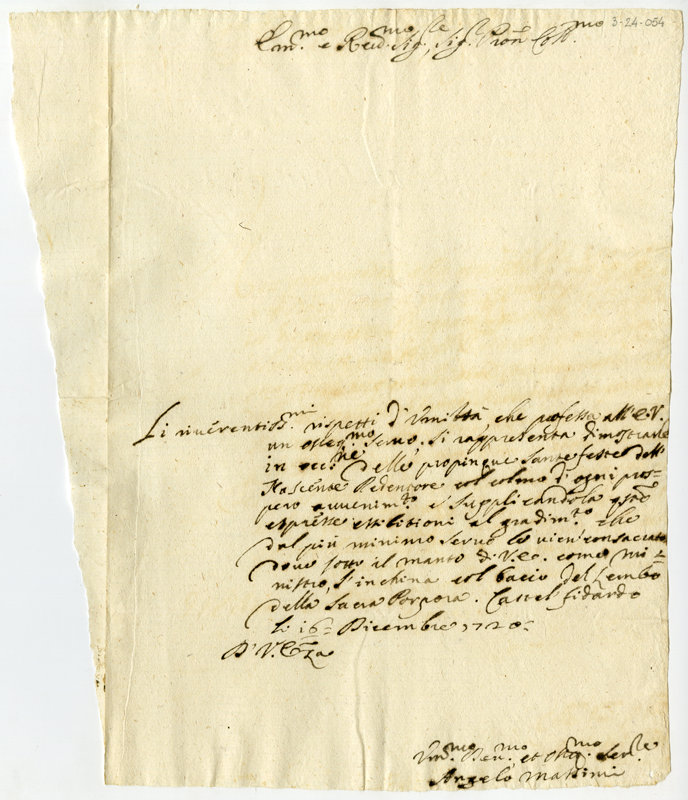 3-24-054
Em.mo e Reu.mo Sig.re, Sig.re Pron Coll.mo
Li riuerentiss.mi rispetti d'Vmiltà, che professa all'E.V.
un osseq.mo Seruo. Si rappresenta dimostrarle
in occ.ne delle propinque Sante feste dell'
Nascente Redentore col colmo di ogni pros=
pero auuenim.to e supplicandola
espresse al gradim.to che
dal più minimo seruo le vien consacrato
doue sotto il manto di V.E. come mi=
nistro, s'inchina col bacio del Lembo
della Sacra Porpora. Castel fidardo
li 16= Dicembre 1720=
D'V.Eza
Vm.mo Deu.mo et Obg.mo Ser.re
Angelo Massimi